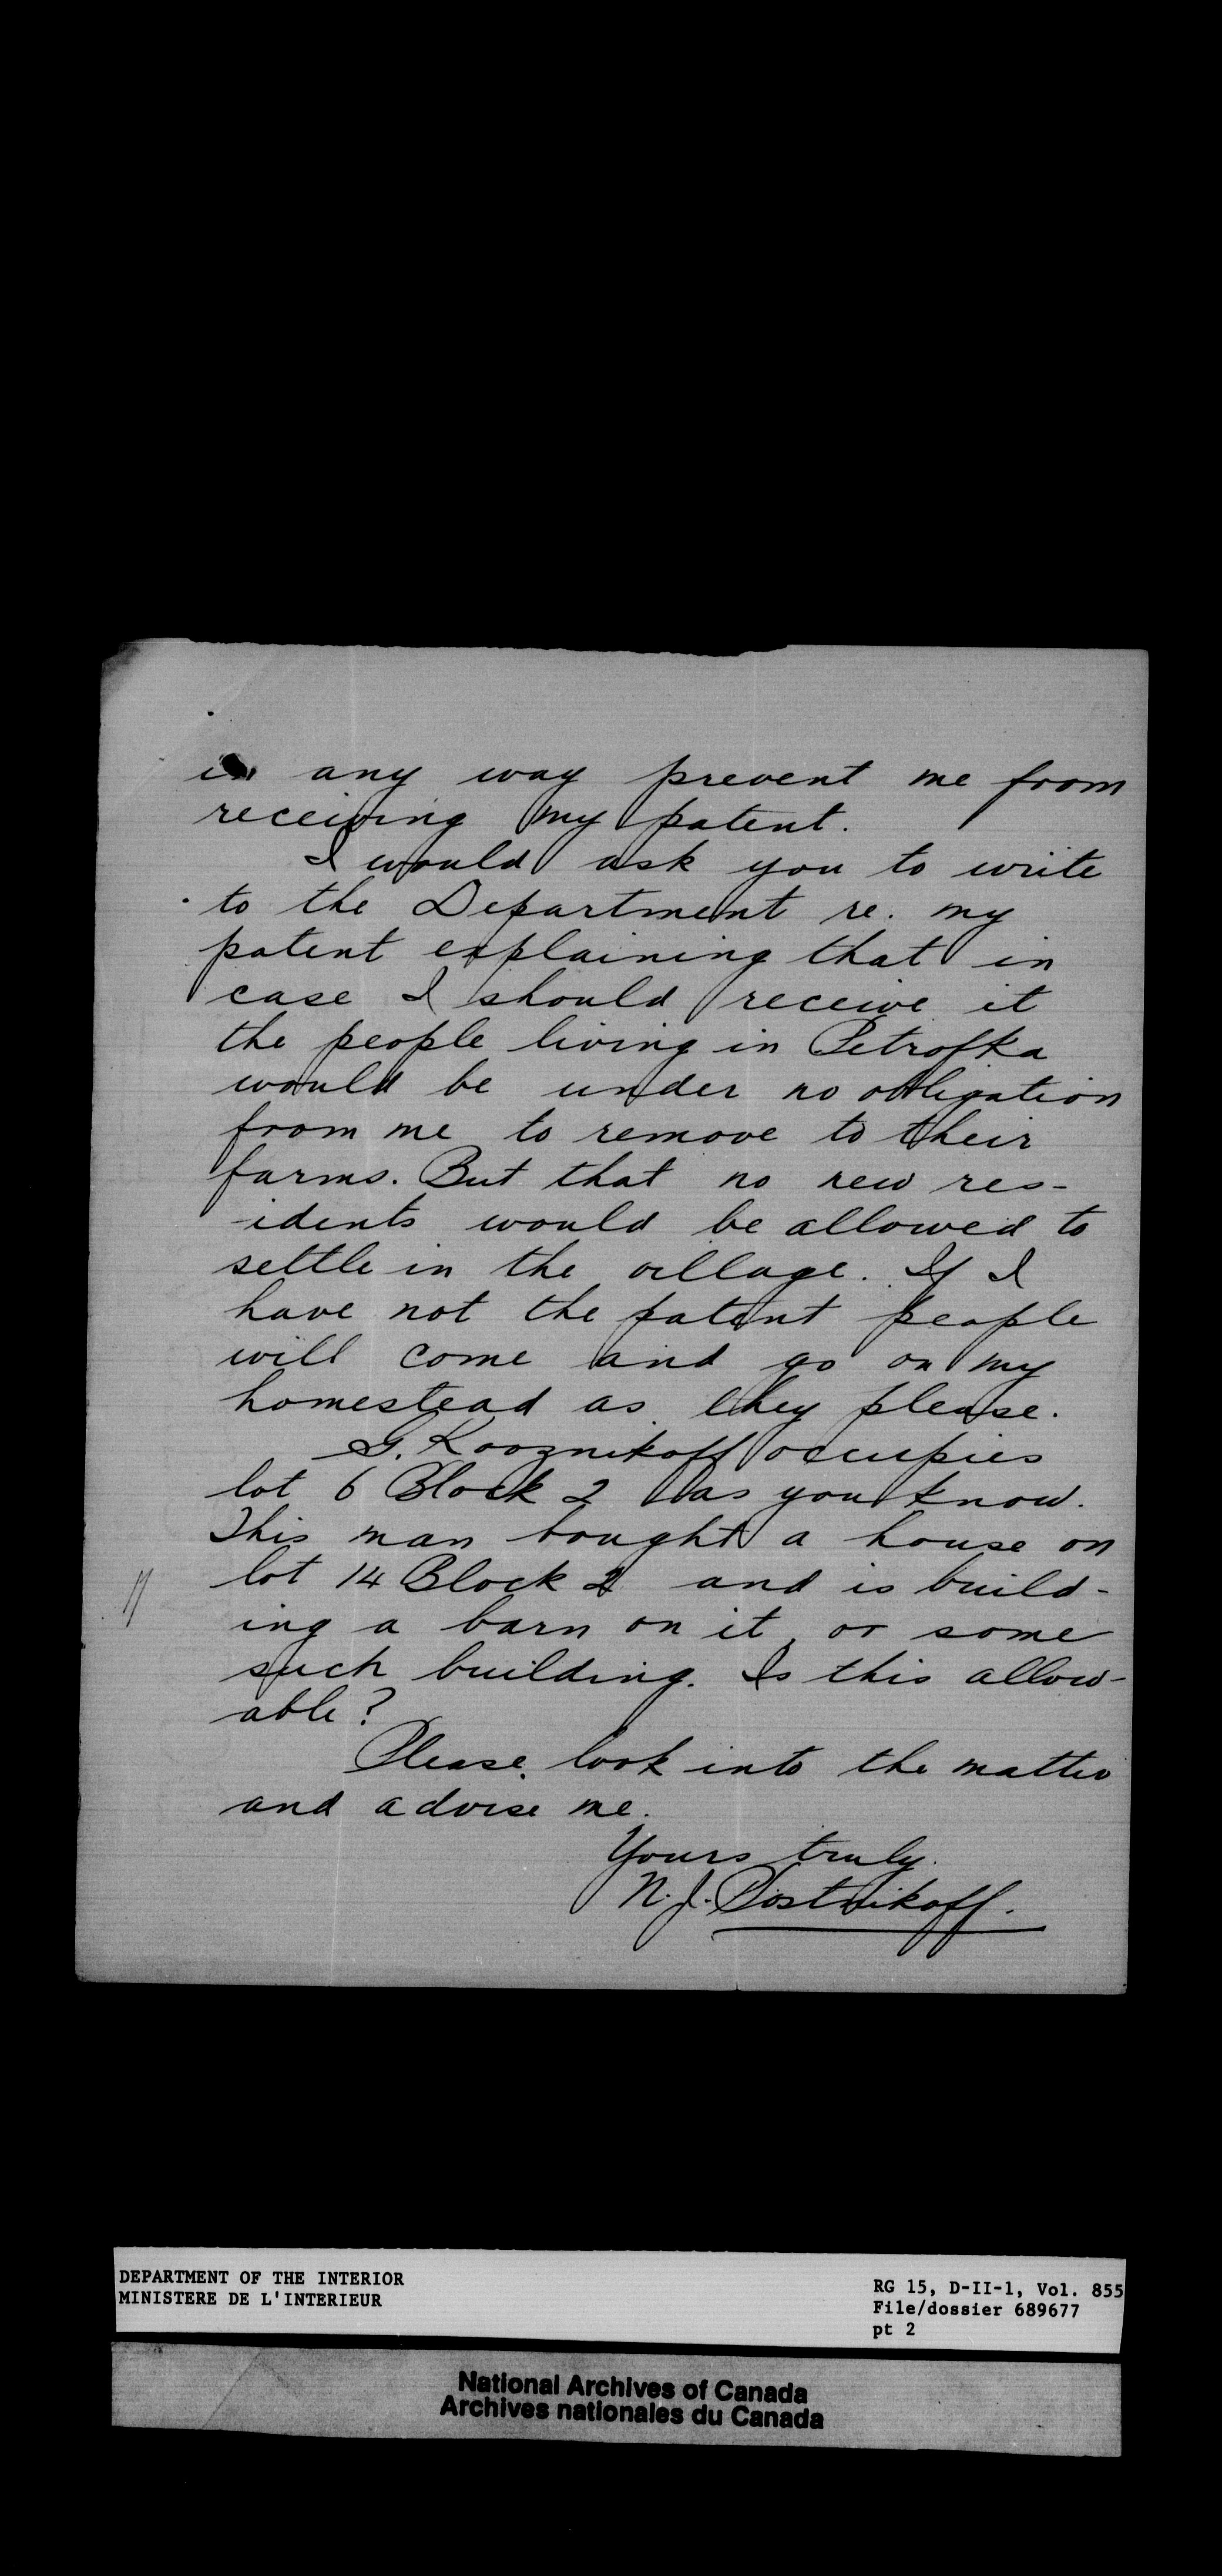 in any way prevent me from
receiving my patent.
I would ask you to write
to the Department re. my
patent explaining that in
case I should receive it
the people living in Petrofka
would be under no obligation
from me to remove to their
farms. But that no new res-
idents would be allowed to
settle in the village. If I
have not the patent people
will come and go on my
homestead as they please.
G. Kooznikoff occupies
lot 6 Block 2 as you know.
This man bought a house on
lot 14 Block 2 and is build-
ing a barn on it, or some
such building. Is this allow-
able?
Please look into the matter
and advise me.
Yours truly.
N. J. Postnikoff.
DEPARTMENT OF THE INTERIOR
MINISTERE DE L'INTERIEUR
RG 15, D-II-1, Vol. 855
File/dossier 689677
pt 2
National Archives of Canada
Archives nationales du Canada